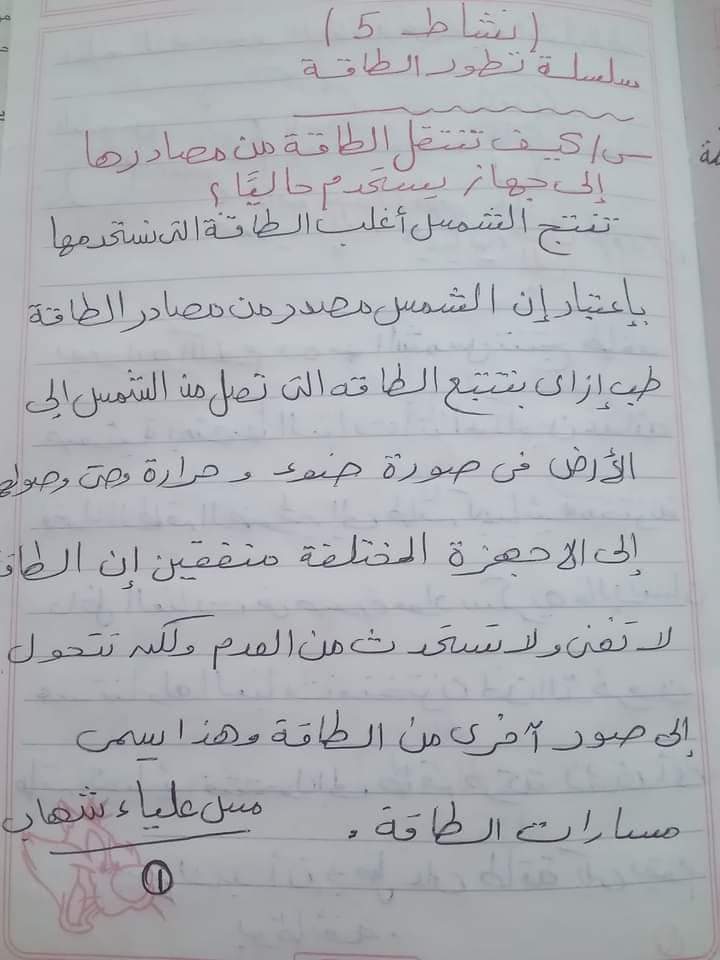 (نشاط 5)
سلسلة تطور الطاقة
س/ كيف تنتقل الطاقة من مصادرها
إلى جهاز يستخدم حاليًا؟
تنتج الشمس أغلب الطاقة التى نستخدمها
بإعتبار إن الشمس مصدر من مصادر الطاقة
طب إزاى بنتتبع الطاقه التى تصل من الشمس إلى
الأرض فى صورة ضوء و حرارة وحتى وصولها
إلى الاجهزة المختلفة متفقين إن الطاقة
لا تفنى ولا تستحدث من العدم ولكنه تتحول
إلى صور آخرى من الطاقة وهذا يسمى
مسارات الطاقة.
مس علياء شهاب
1